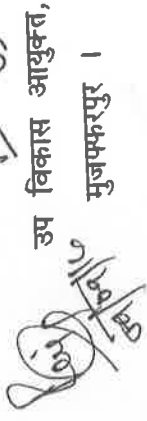 उप विकास आयुक्त,
मुजफ्फरपुर ।